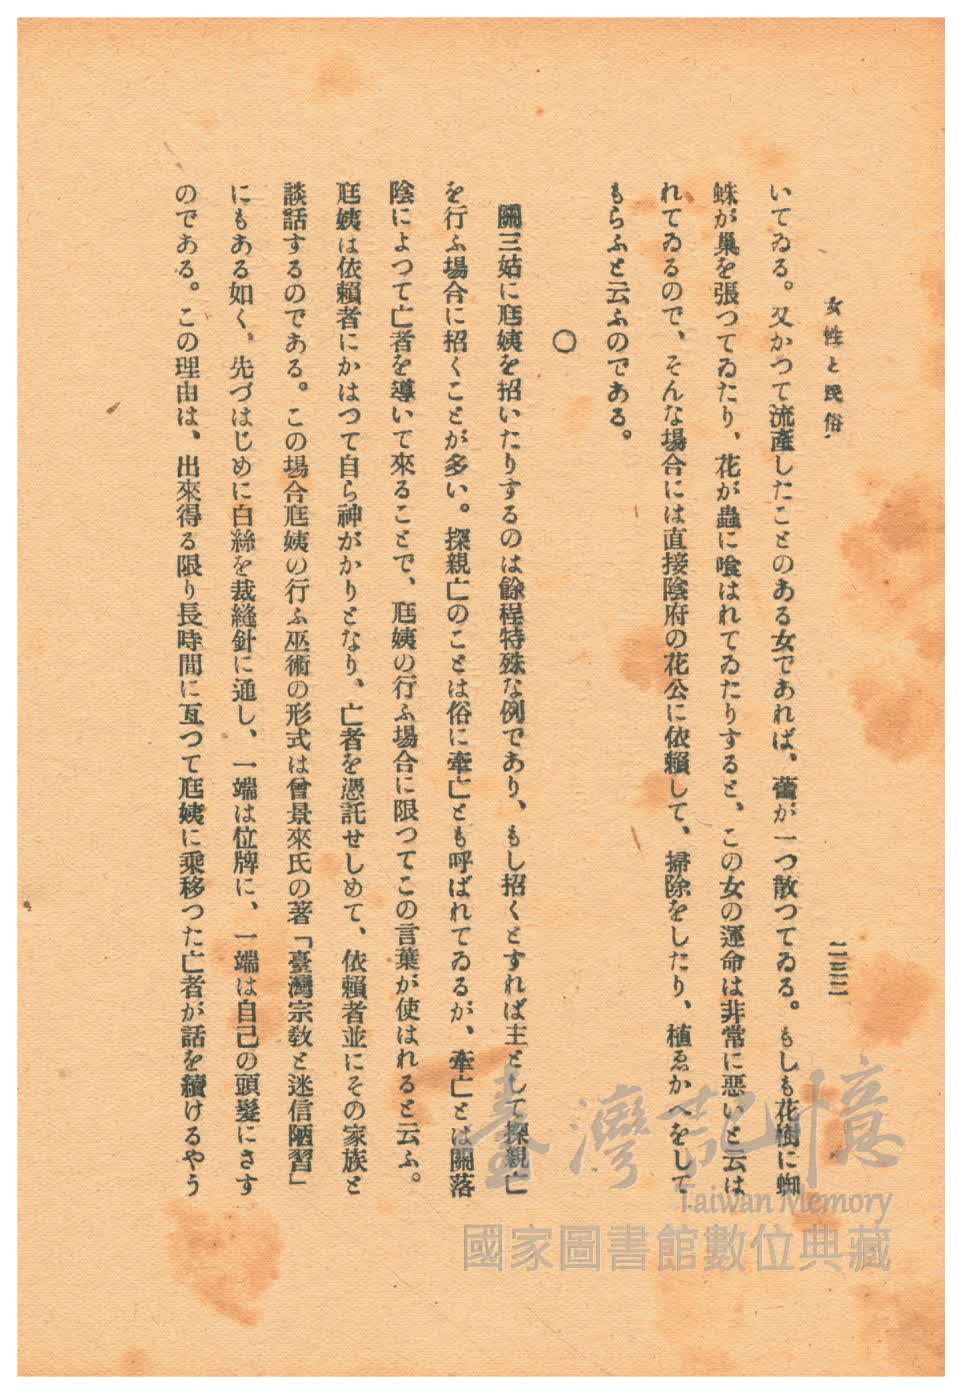 女性と民俗
二三二
いてゐる。又かつて流產したことのある女であれば、蕾が一つ散つてゐる。もしも花樹に蜘
蛛が巢を張つてゐたり、花が蟲に喰はれてゐたりすると、この女の運命は非常に惡いと云は
れてゐるので、そんな場合には直接陰府の花公に依賴して、掃除をしたり、植ゑかへをして
もらふと云ふのである。
〇
關三姑に尪姨を招いたりするのは餘程特殊な例であり、もし招くとすれば主として探親亡
を行ふ場合に招くことが多い。探親亡のことは俗に牽亡とも呼ばれてゐるが、牽亡とは關落
陰によつて亡者を導いて來ることで、尪姨の行ふ場合に限つてこの言葉が使はれると云ふ。
尪姨は依賴者にかはつて自ら神がかりとなり、亡者を憑託せしめて、依賴者並にその家族と
談話するのである。この場合尪姨の行ふ巫術の形式は曾景來氏の著「臺灣宗敎と迷信陋習」
にもある如く、先づはじめに白絲を裁縫針に通し、一端は位牌に、一端は自己の頭髮にさす
のである。この理由は、出來得る限り長時間に亙つて尪姨に乘移つた亡者が話を續けるやう
臺灣記憶
Taiwan Memory
國家圖書館數位典藏